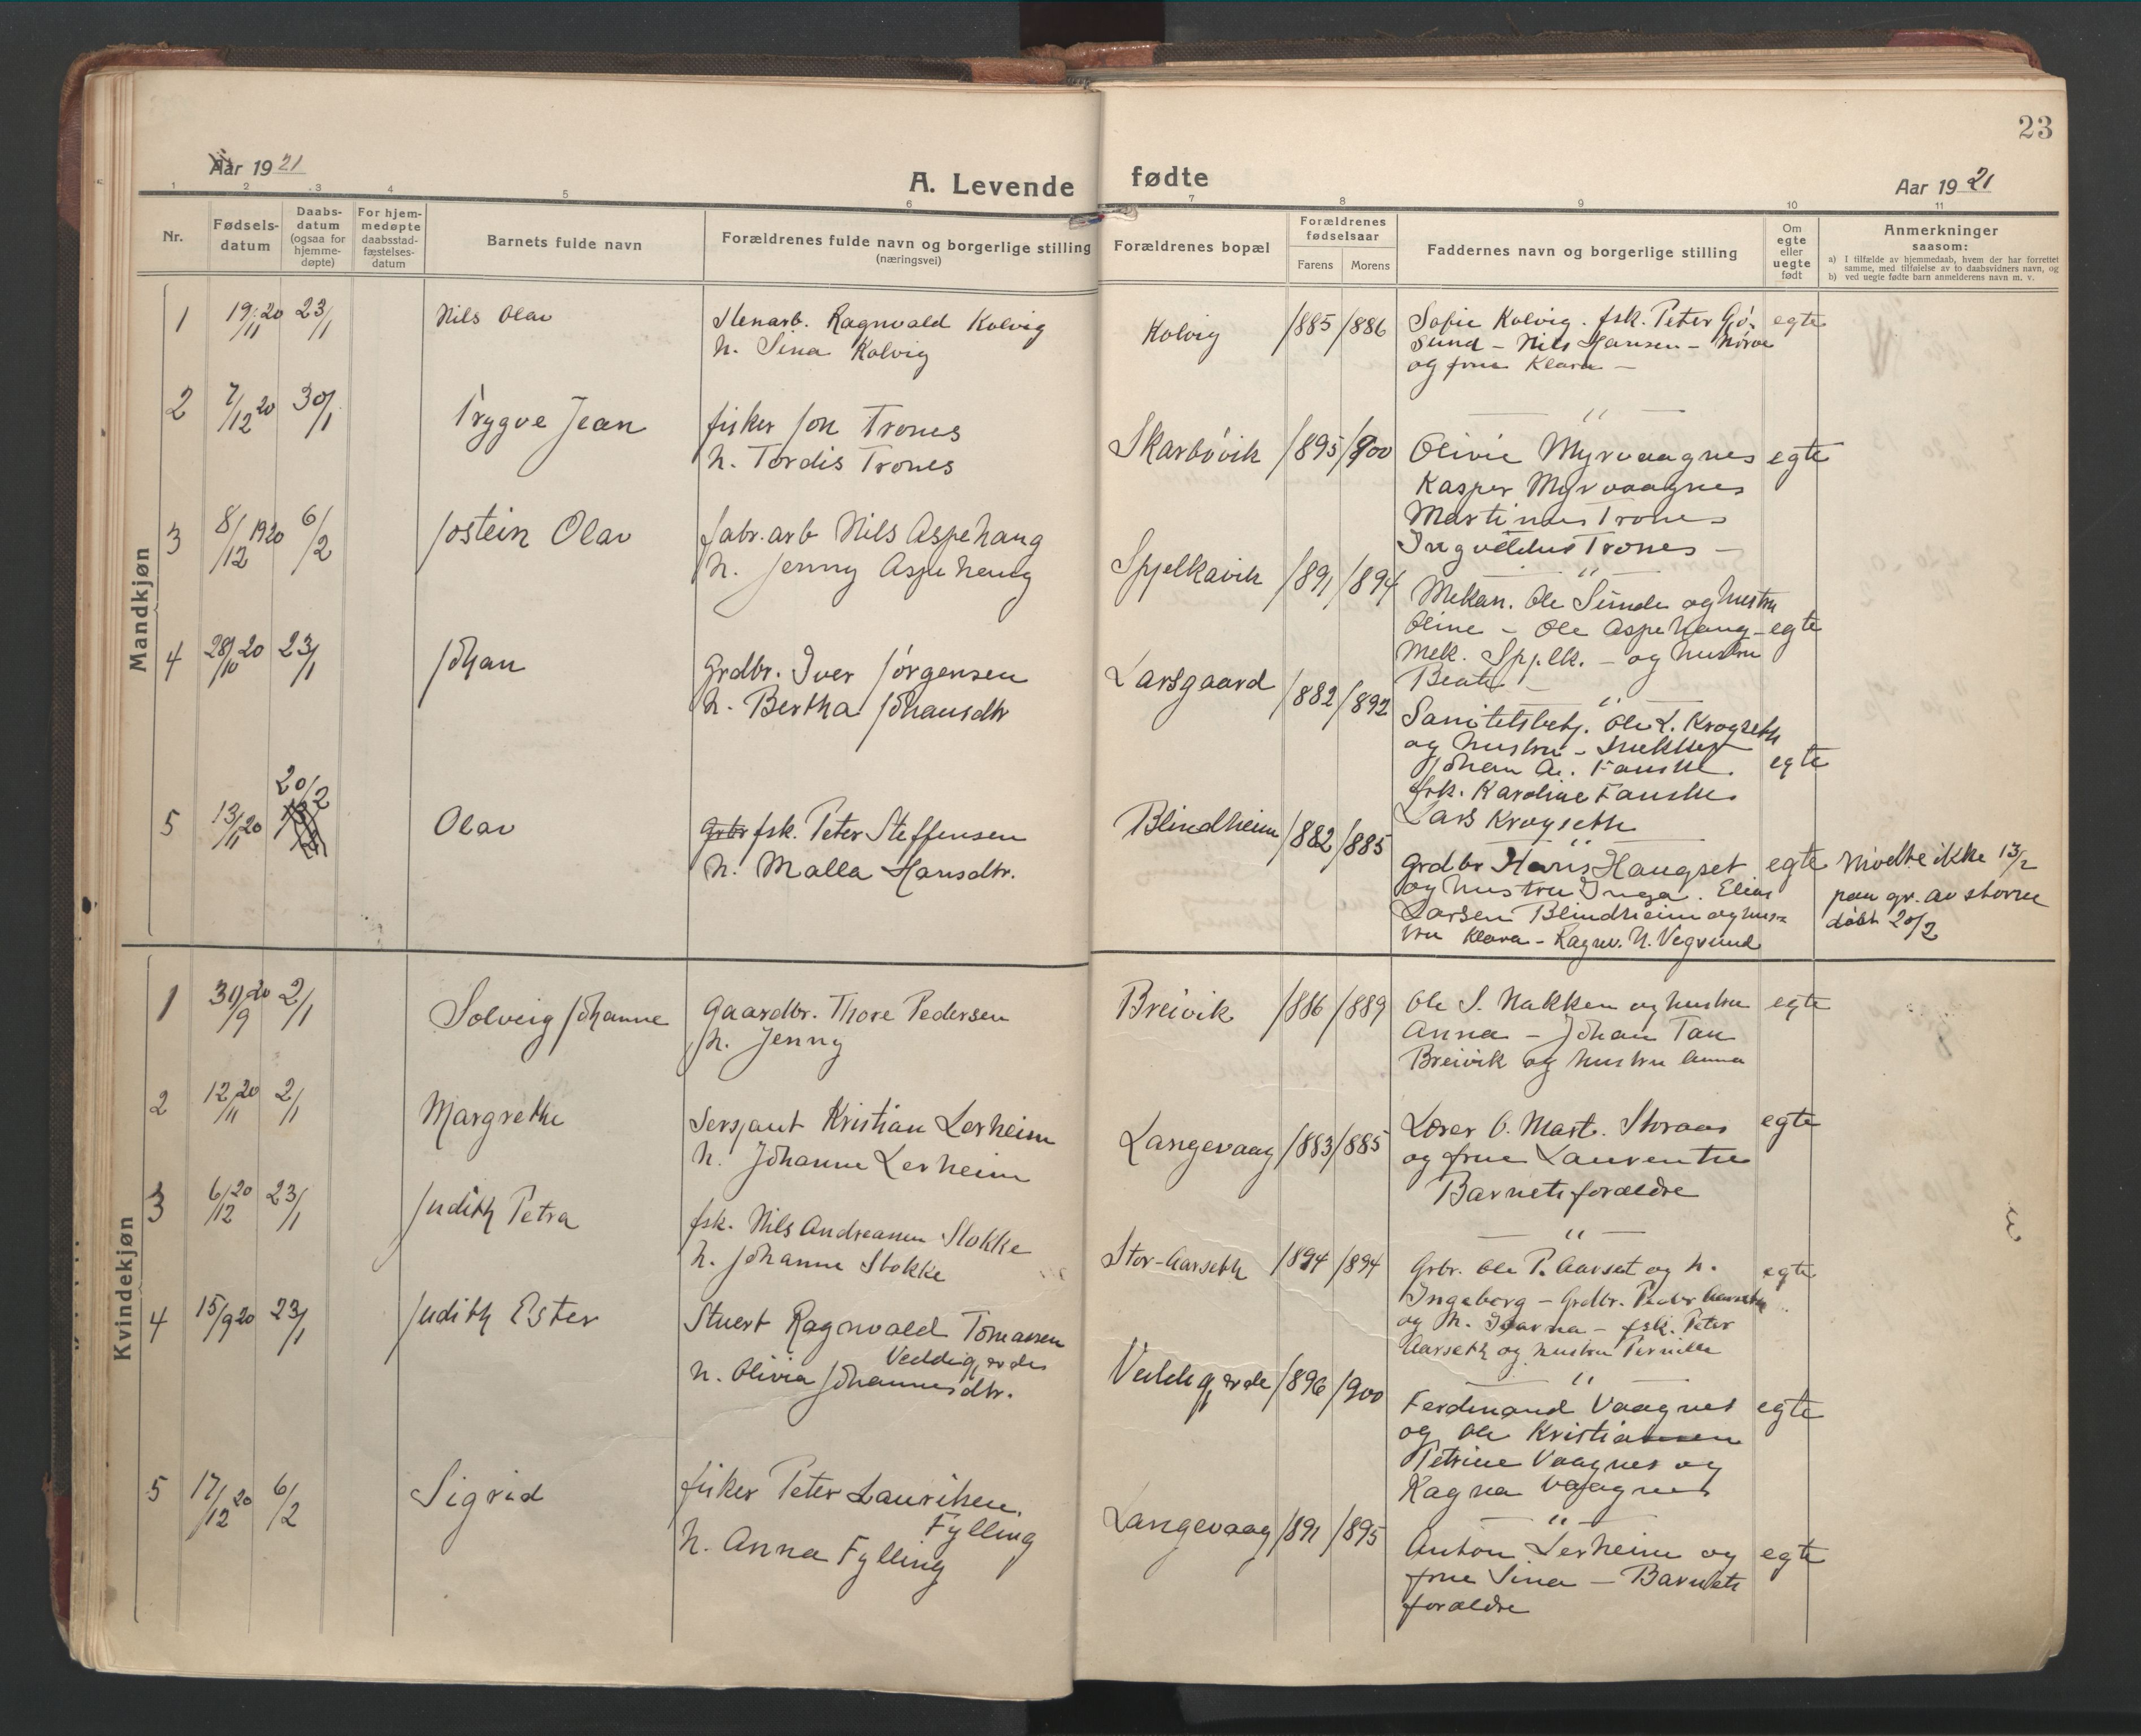 23
Aar 19 21
A. Levende fødte
Aar 19 21
1 2 3 4 5 6 7 8 9 10 11
Nr.
Fødsels-
datum
Daabs-
datum
(ogsaa for
hjemme-
døpte)
For hjem-
medøpte
daabsstad-
fæstelses-
datum
Barnets fulde navn
Forældrenes fulde navn og borgerlige stilling
(næringsvei)
Forældrenes bopæl
Forældrenes
fødselsaar
Farens Morens
Faddernes navn og borgerlige stilling
Om
egte
eller
uegte
født
Anmerkninger
saasom:
a) I tilfælde av hjemmedaab, hvem der har forrettet
samme, med tilføielse av to daabsvidners navn, og
b) ved uegte fødte barn anmelderens navn m. v.
Mandkjøn
1 19/11 20 23/1 Nils Olav
Stenarb. Ragnvald Kolvig
h. Sina Kolvig
Kolvig 1885 1886
Sofie Kolvig. fsk. Peter
sund – Nils Hansen –
og frue Klara –
egte
2 7/12 20 30/1 Trygve Jean
fisker Jon Trones
h. Tordis Trones
Skarbøvik 1895 1900
Olivie Myrvaagnes
Kasper Myrvaagnes
Martinus Trones
Trones –
egte
3 8/12 1920 6/2 Jostein Olav
fabr.arb Nils Aspehaug
h. Jenny Aspehaug
Spjelkavik 1891 1894
Mekan. Ole Sunde og hustru
Oline – Ole Aspehaug –
Mek. Spjelk. – og hustru
Beate –
egte
4 28/10 20 23/1 Johan
Grdbr. Iver Jørgensen
h. Bertha Johansdtr
Larsgaard 1882 1892
Sanitetsbetj. Ole L. Krogseth
og hustru –
Johan A. Fauske.
frk. Karoline Fauske
Lars Krogseth
egte
5 13/11 20 20/2 Olav
Grbr fsk. Peter Steffensen
h. Malla Hansdtr.
Blindheim 1882 1885
Grdbr Hans Haugset
og hustru Inga. Elias
Larsen Blindheim og hus-
tru Klara – Ragnv. N. Vegsund
egte
Mødte ikke 13/2
paa gr. av storm
døbt 20/2
Kvindekjøn
1 30/9 20 2/1 Solveig Johanne
Gaardbr. Thore Pedersen
h. Jenny
Breivik 1886 1889
Ole S. Nakken og hustru
Anna – Johan Tau
Breivik og hustru Anna
egte
2 12/11 20 2/1 Margrethe
Sersjant Kristian Lerheim
h. Johanne Lerheim
Langevaag 1883 1885
Lærer O. Mart. Storaas
og frue Laurentse
Barnets forældre
egte
3 6/12 20 23/1 Judith Petra
fsk. Nils Andreassen Stokke
h. Johanne Stokke
Stor-Aarseth 1894 1894
Grbr. Ole P. Aarset og h.
Ingeborg – Grdbr. Peder Aarseth
og h. – fsk. Peter
Aarseth og hustru Pernille
egte
4 15/9 20 23/1 Judith Ester
Stuert Ragnvald Tomassen
Veddegjerde
h. Olivia Johannesdtr.
Veddegjerde 1896 1900
Ferdinand Vaagnes
og Ole Kristiansen
Petrine Vaagnes og
Ragna Vaagnes
egte
5 17/12 20 6/2 Sigrid
fisker Peter Lauritsen
Fylling
h. Anna Fylling
Langevaag 1891 1895
Anton Lerheim og
frue Sina – Barnets
forældre
egte